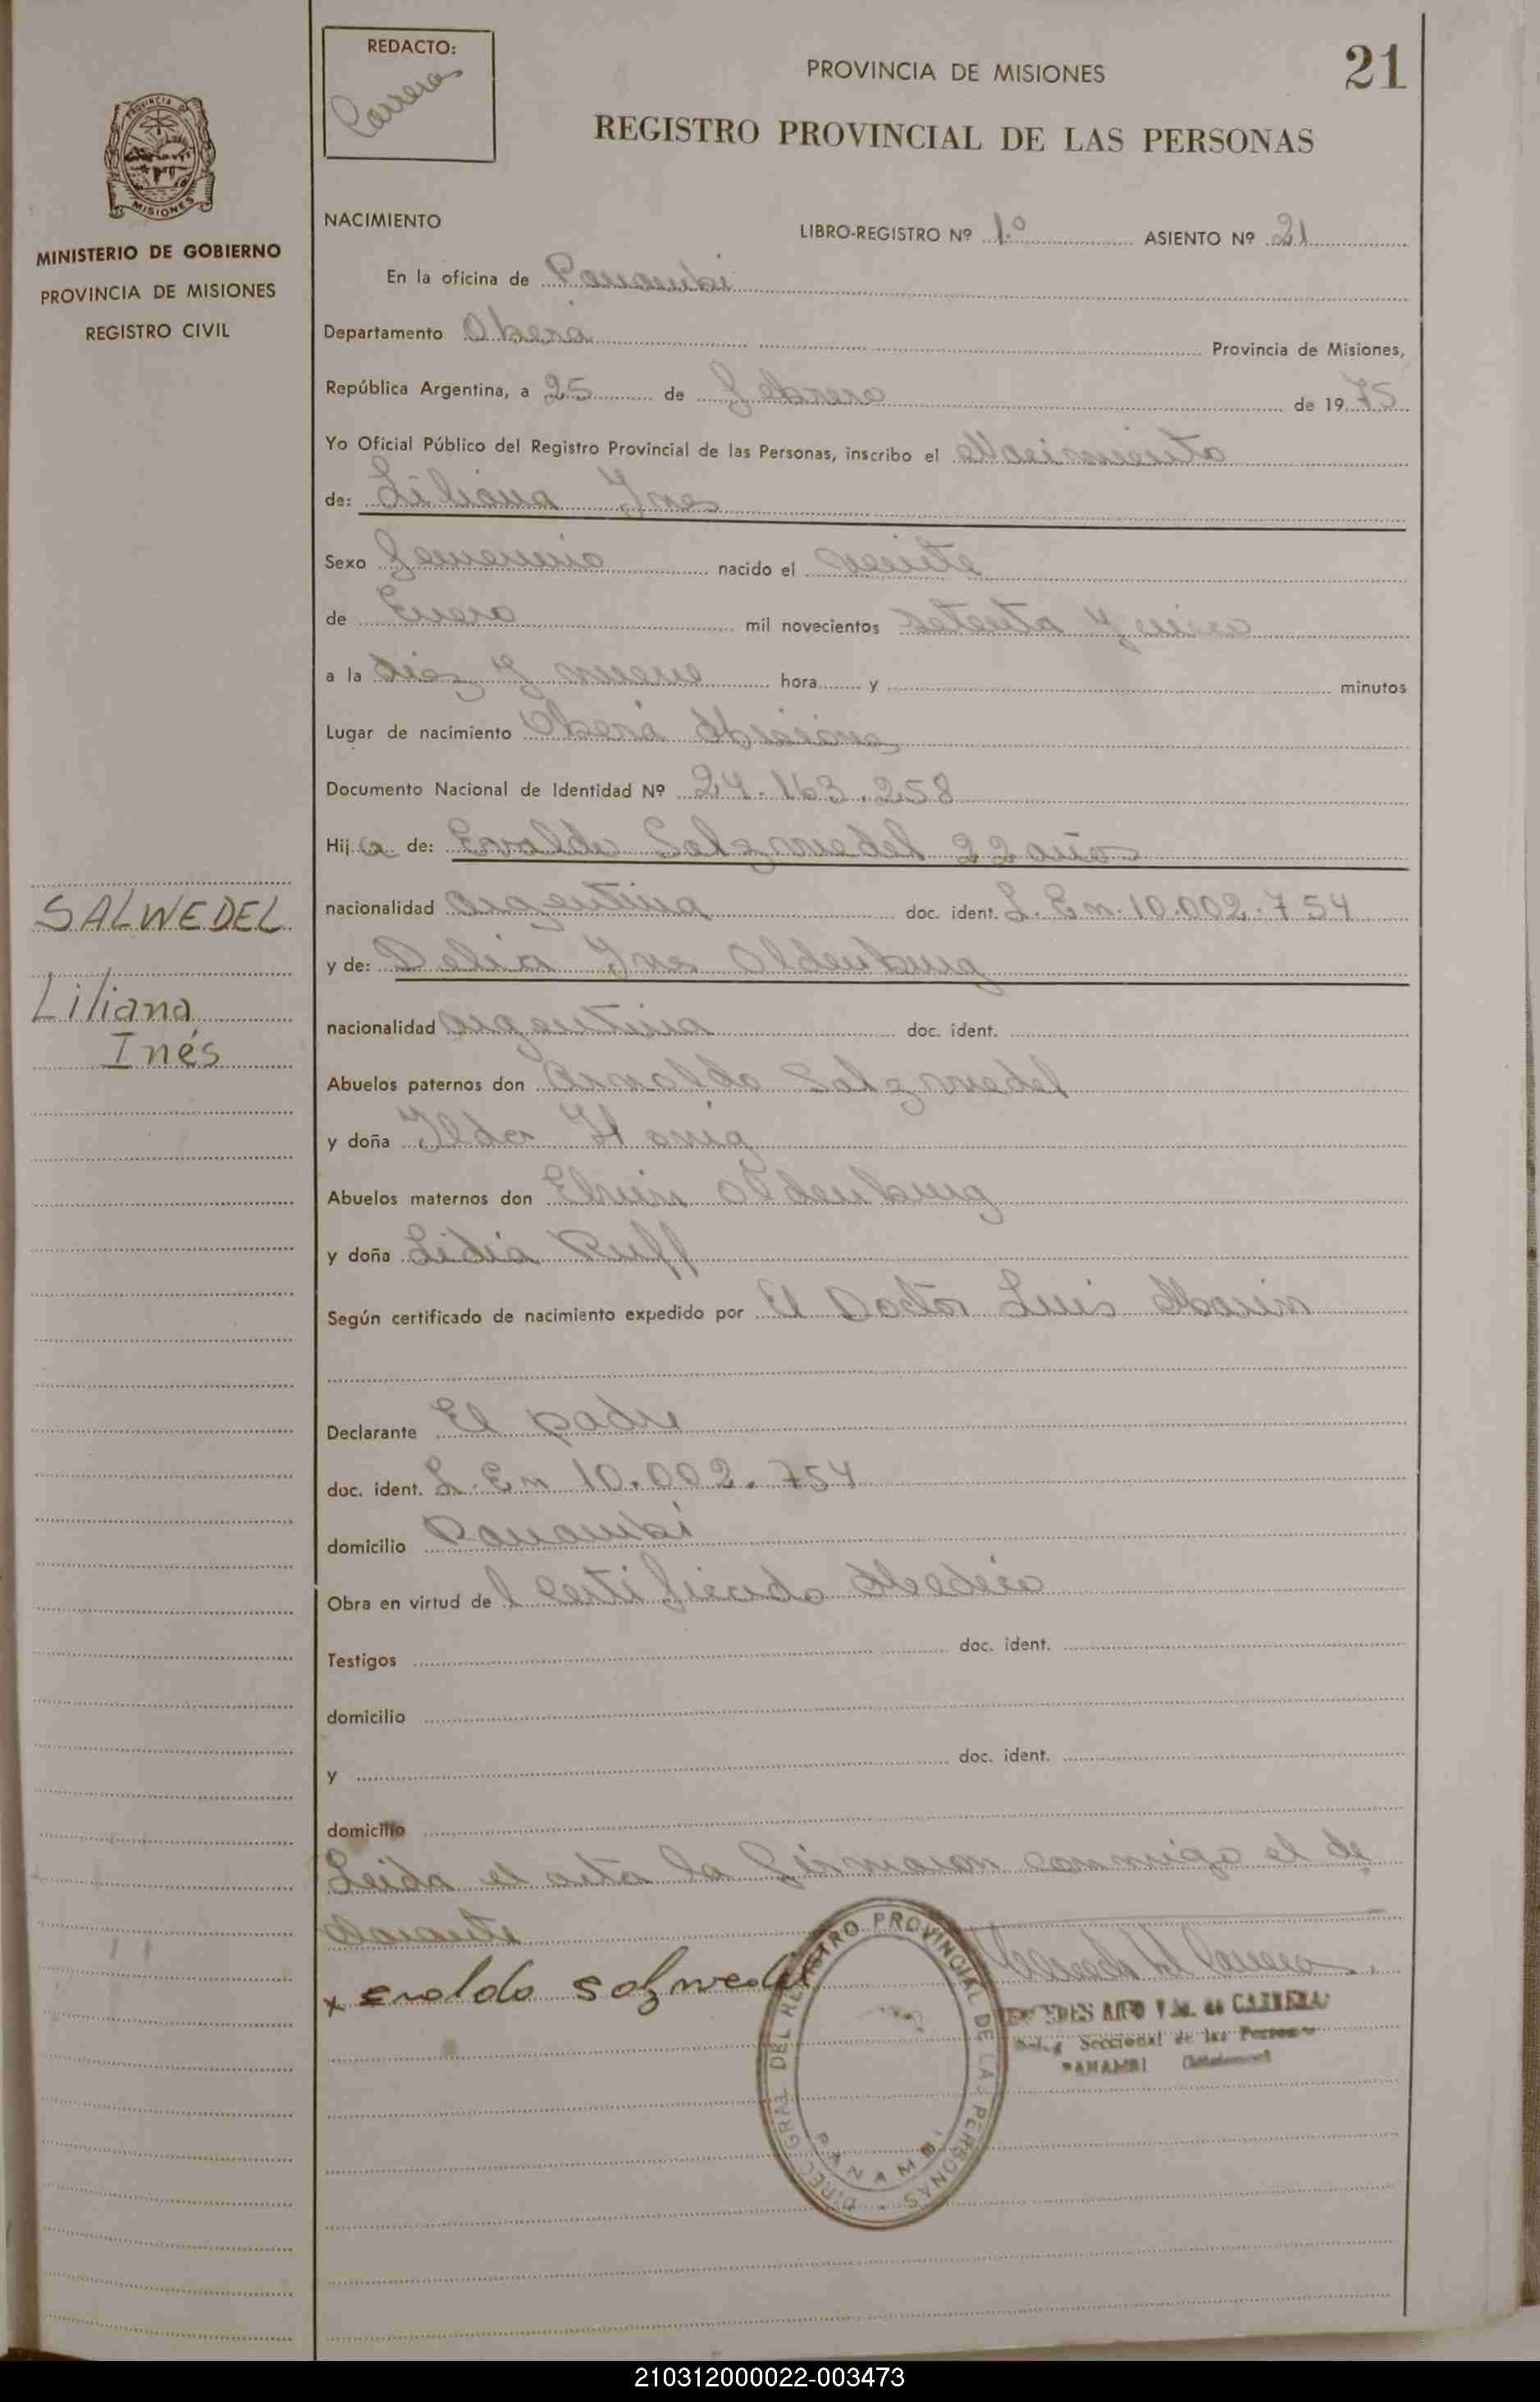 REDACTO:
Carrera
PROVINCIA DE MISIONES
21
REGISTRO PROVINCIAL DE LAS PERSONAS
PROVINCIA DE
MISIONES
MINISTERIO DE GOBIERNO
PROVINCIA DE MISIONES
REGISTRO CIVIL
NACIMIENTO
LIBRO-REGISTRO Nº 1º ASIENTO Nº 21
En la oficina de Panambi
Departamento Oberá Provincia de Misiones,
República Argentina, a 25 de Febrero de 1975
Yo Oficial Público del Registro Provincial de las Personas, inscribo el Nacimiento
de: Liliana Ines
Sexo Femenino nacido el veinte
de Enero mil novecientos setenta y cinco
a la diez y nueve hora y minutos
Lugar de nacimiento Oberá Misiones
Documento Nacional de Identidad Nº 24.163.258
Hija de: Evaldo Salzwedel 22 años
nacionalidad argentina doc. ident. L. En. 10.002.754
y de: Delia Ines Oldenburg
nacionalidad argentina doc. ident.
Abuelos paternos don Arnoldo Salzwedel
y doña Ilda Honig
Abuelos maternos don Elvin Oldenburg
y doña Lidia Ruff
Según certificado de nacimiento expedido por El Doctor Luis
Declarante El padre
doc. ident. L. En 10.002.754
domicilio Panambi
Obra en virtud del certificado Medico
Testigos doc. ident.
domicilio
y doc. ident.
domicilio
Leida el acta la firmaron conmigo el de
clarante
x Evaldo Salzwedel
SALWEDEL
Liliana
Inés
DIREC. GRAL. DEL REGISTRO PROVINCIAL DE LAS PERSONAS
PANAMBI
de CARRERA
Seccional de las Personas
PANAMBI (Misiones)
210312000022-003473